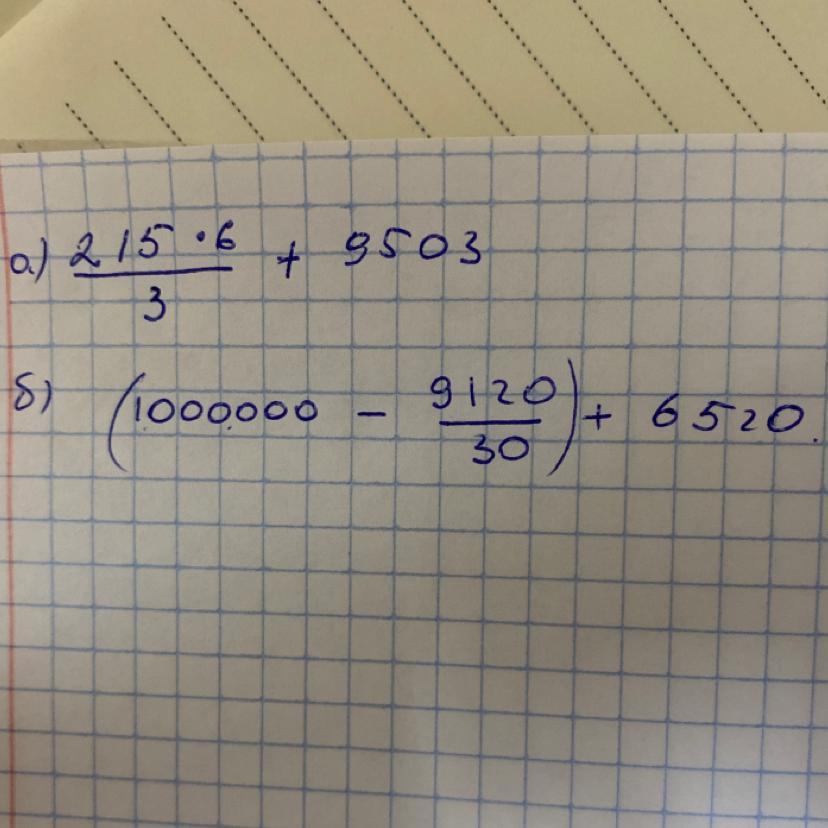 а) (215 · 6)/3 + 9503
б) (1000000 − 9120/30) + 6520.